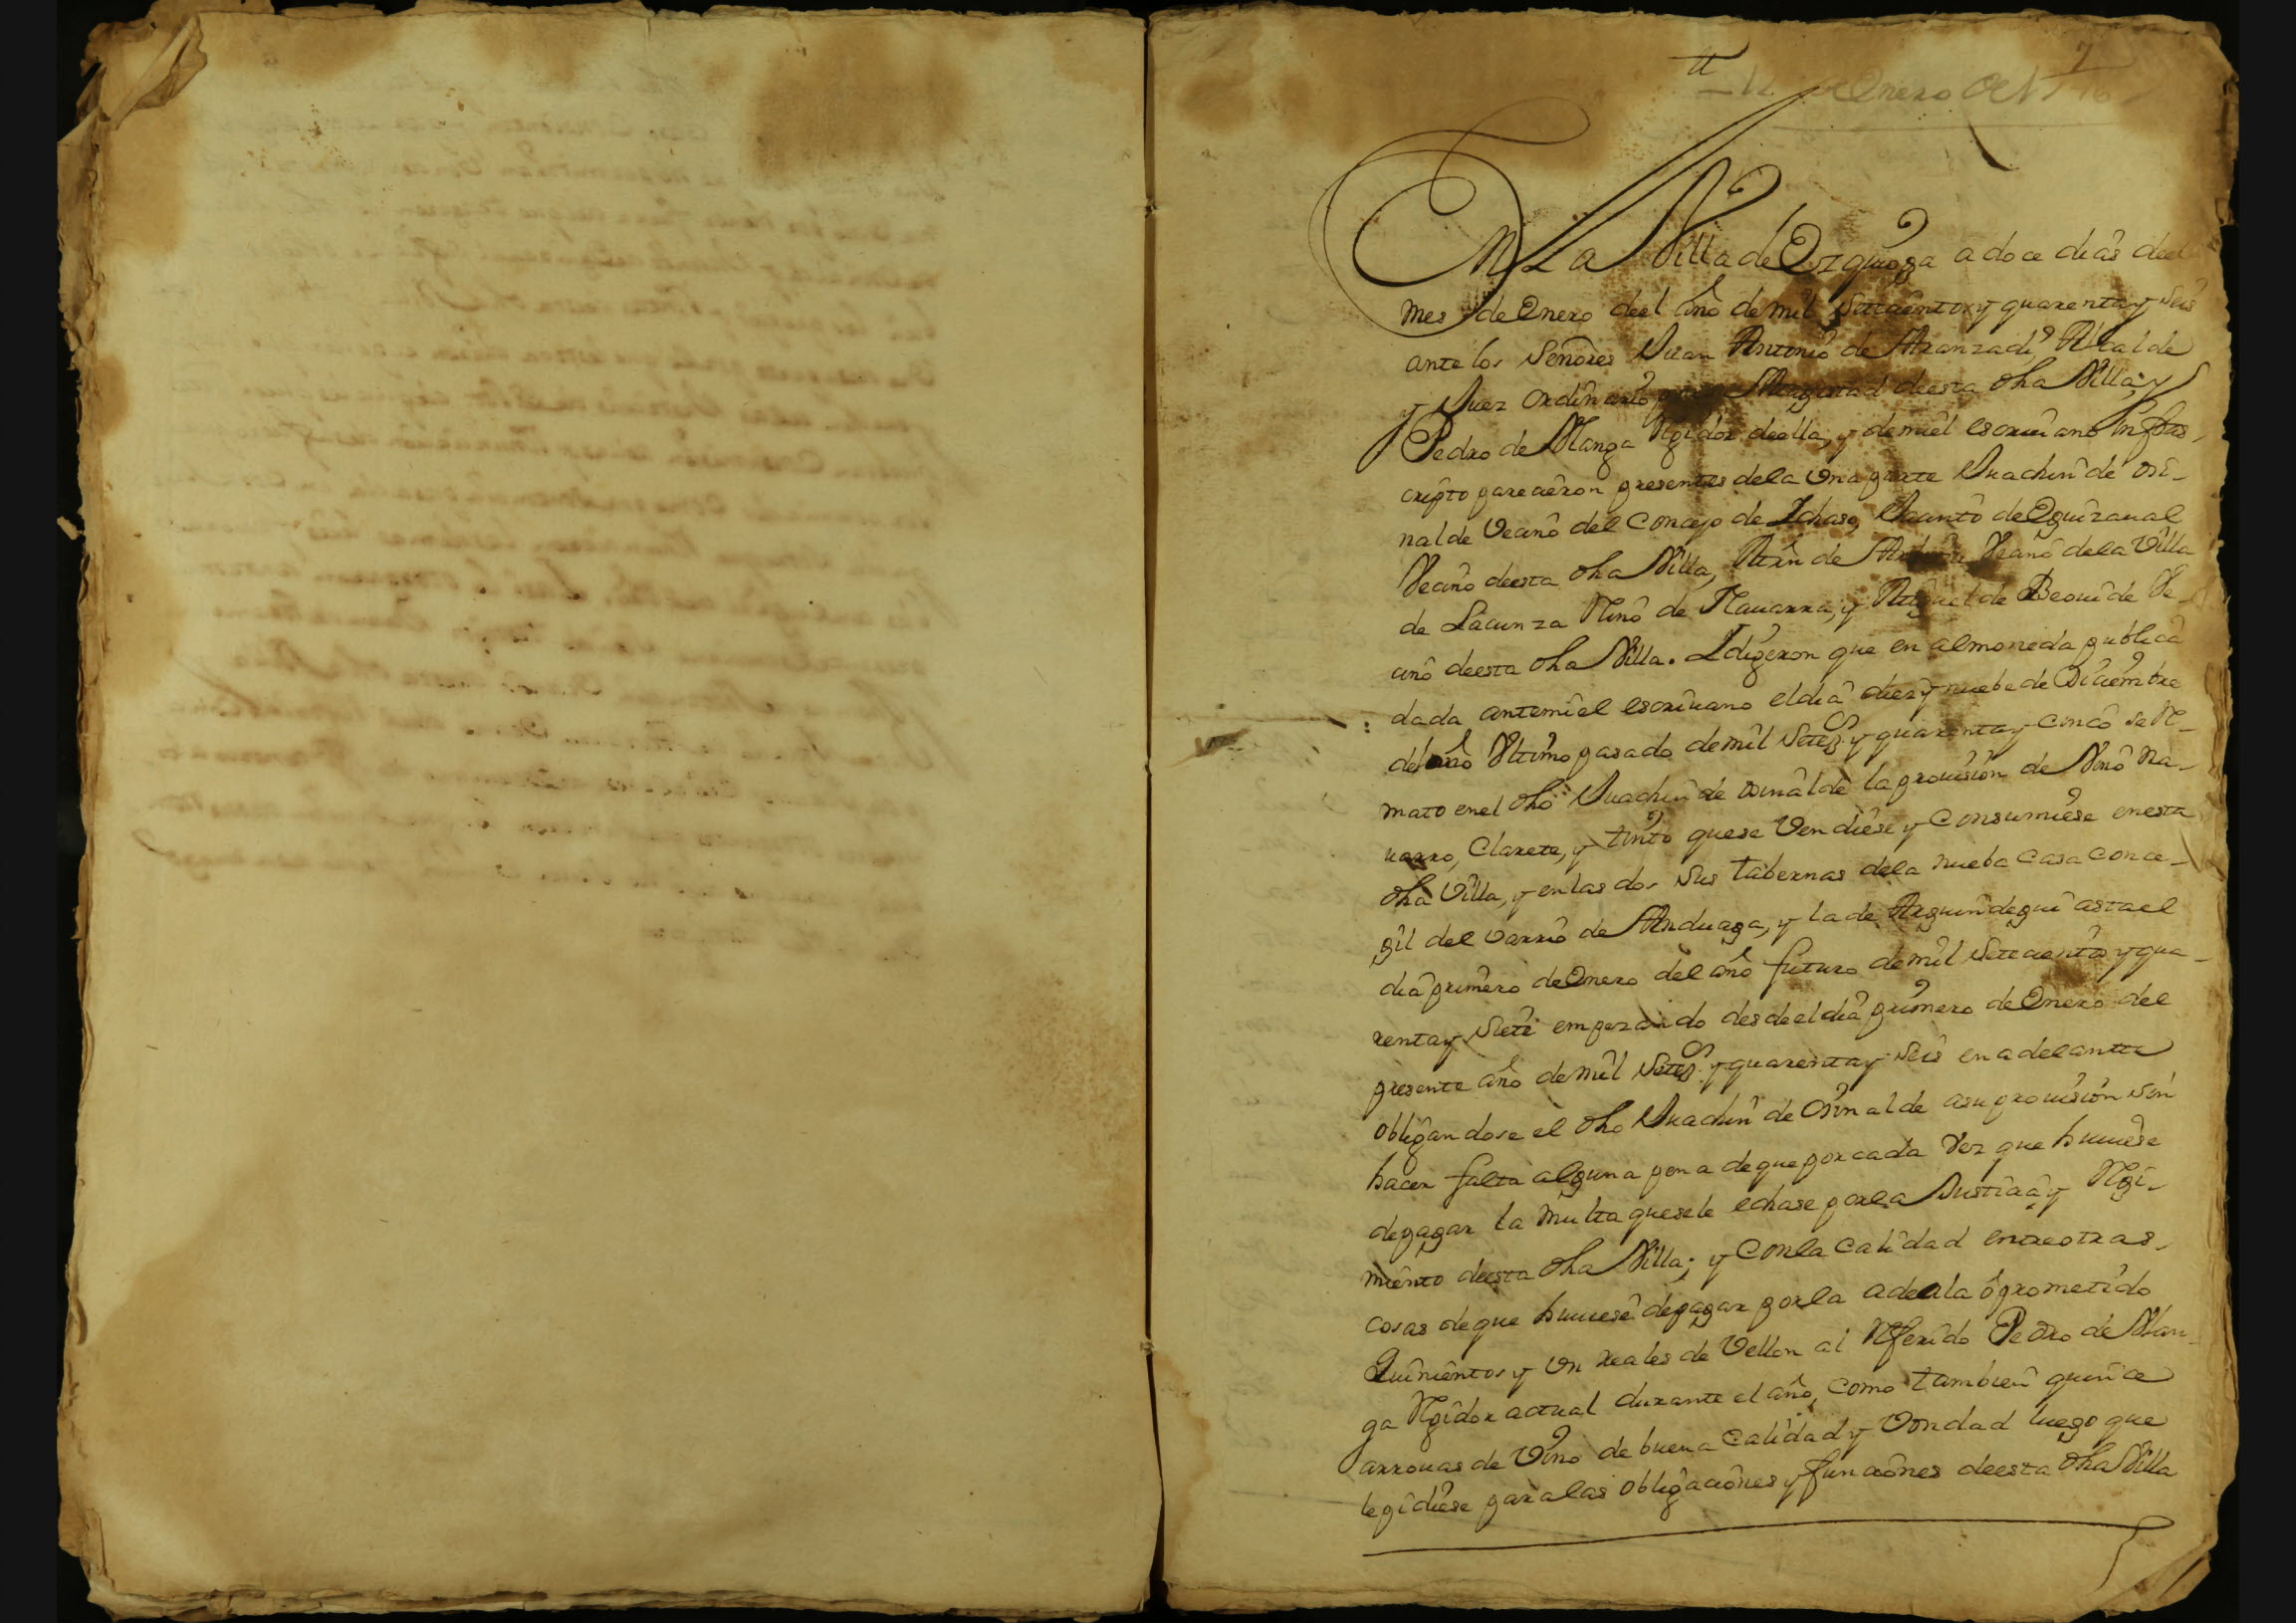 7
12 de Enero de 1746
En La Villa de Ezquioga a doce dias deel
mes de Enero deel año de mil Settecientos y quarenta y Seis
ante los Señores Juan Antonio de Aranzadi, Alcalde
y Juez ordinario por su Magestad deesta dha Villa, y
Pedro de Manga Rexidor deella, y demi el escriuano Infras-
cripto parecieron presentes dela Una parte Juachin de osi-
nalde Vecino del Concejo de Ichaso, Jacinto de Eguizaual
Vecino deesta dha Villa, Mrn de Vecino dela Villa
de Lacunza Rno de Nauarra, y Miguel de Beouide Ve-
cino deesta dha Villa. I digeron que en almoneda publica
dada antemi el escriuano el dia diez y nuebe de Diciembre
del año Ultimo pasado demil Settes. y quarenta y cinco se Re-
mato enel dho Juachin de osinalde la prouision de Vino Na-
uarro, Clarete, y tinto quese Vendiese y Consumiese enesta
dha Villa, y enlas dos Sus tabernas dela nueba Casa Conce-
gil del varrio de Anduaga, y la de Arguindegui asta el
dia primero de Enero del año futuro de mil Settecientos y qua-
renta y Siete empezando desde el dia primero de Enero del
presente año de mil Settes. y quarenta y Seis en adelantte
obligandose el dho Juachin de Osinalde asu prouision sin
hacer falta alguna pena de que por cada Vez que huuiese
depagar la multa quesele echase porla Justicia y Regi-
miento deesta dha Villa; y Conla Calidad entre otras
cosas de que huuiese depagar porla adeala ô prometido
Quinientos y Un reales de Vellon al Referido Pedro de Man-
ga Regidor actual durante el año, como tambien quince
arrouas de Vino de buena Calidad y Vondad luego que
le pidiese para las obligaciones y funciones deesta dha Villa